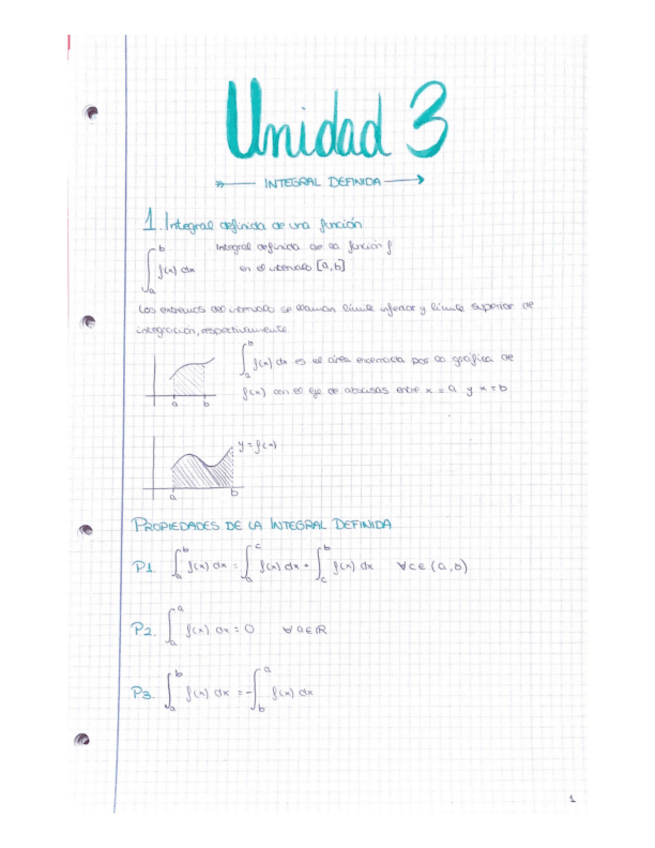 Unidad 3
INTEGRAL DEFINIDA
1. Integral definida de una función
∫_a^b f(x) dx Integral definida de la función f
en el intervalo [a,b]
Los extremos del intervalo se llaman límite inferior y límite superior de
integración, respectivamente.
∫_a^b f(x) dx es el área encerrada por la gráfica de
f(x) con el eje de abscisas entre x = a y x = b
a b
y = f(x)
a b
PROPIEDADES DE LA INTEGRAL DEFINIDA
P1. ∫_a^b f(x) dx = ∫_a^c f(x) dx + ∫_c^b f(x) dx ∀ c ∈ (a,b)
P2. ∫_a^a f(x) dx = 0 ∀ a ∈ ℝ
P3. ∫_a^b f(x) dx = - ∫_b^a f(x) dx
1